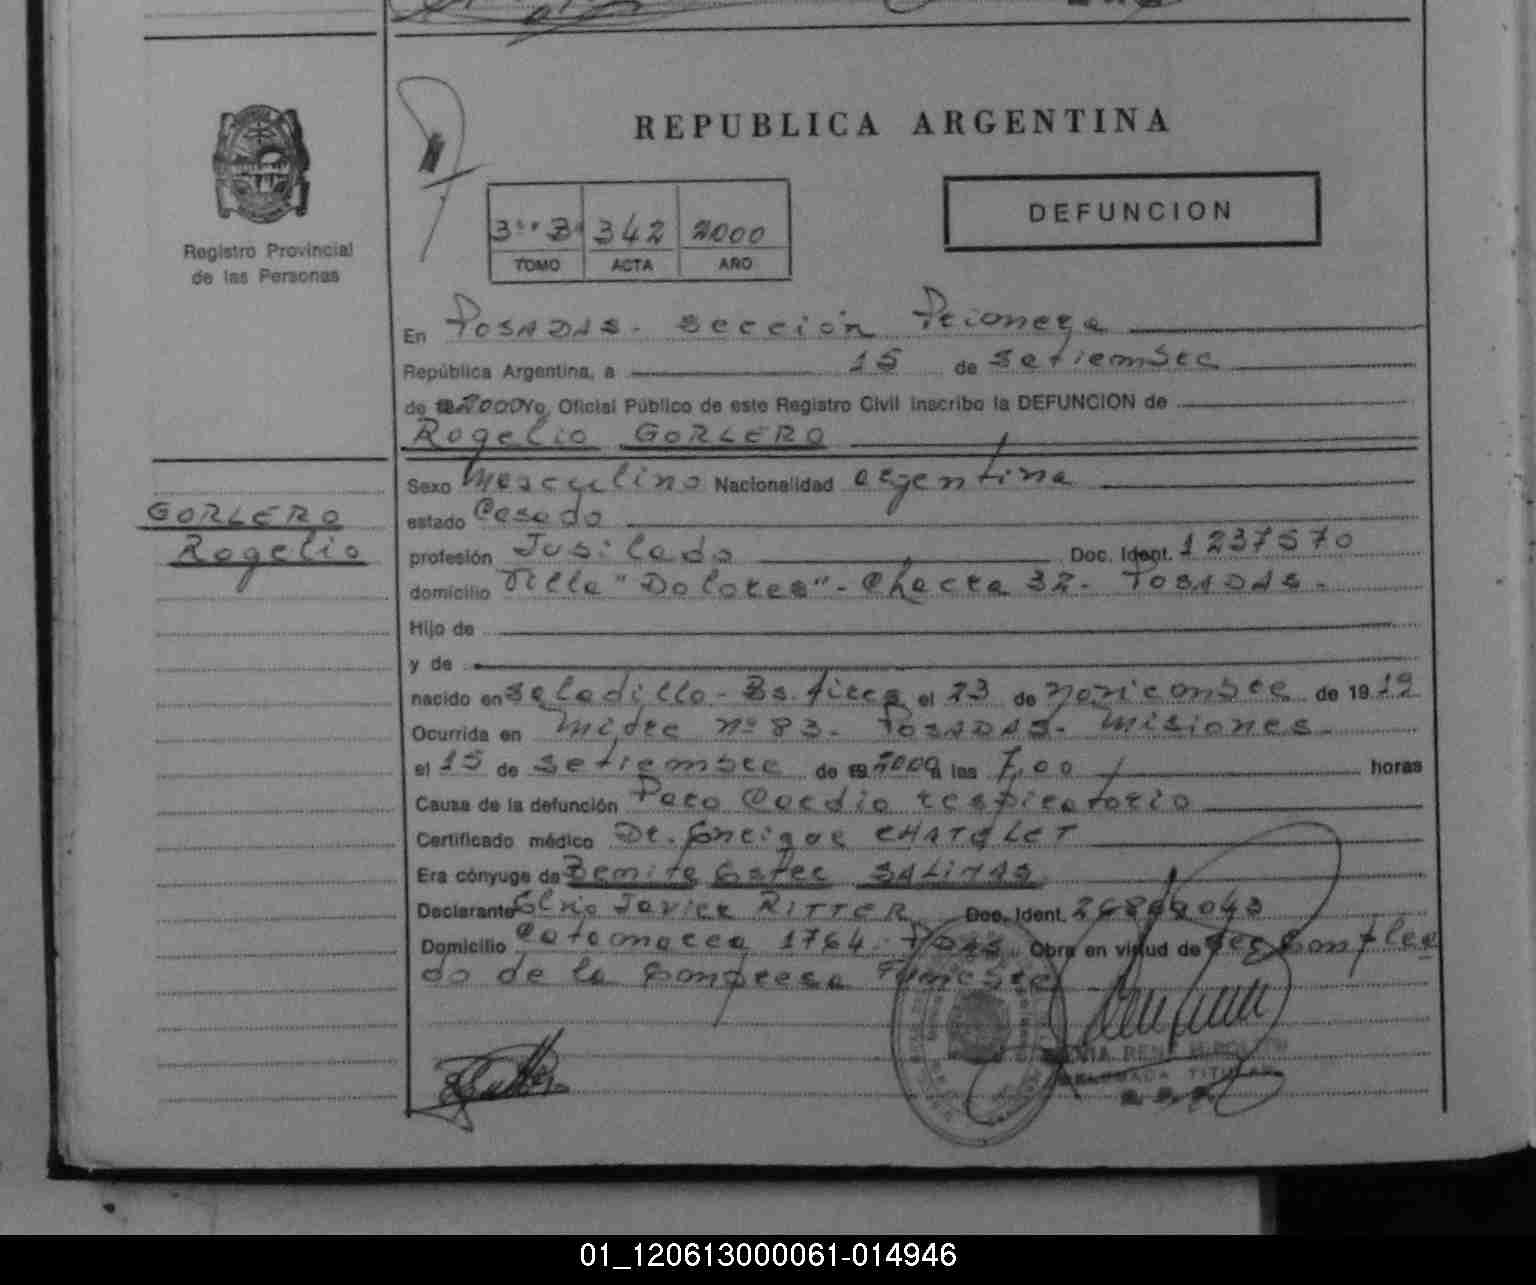 REPUBLICA ARGENTINA
Registro Provincial
de las Personas
342 2000
TOMO ACTA AÑO
DEFUNCION
En POSADAS - Sección Primera
República Argentina, a 15 de Setiembre
de 2000 Yo, Oficial Público de este Registro Civil inscribo la DEFUNCION de
Rogelio GORLERO
GORLERO
Rogelio
Sexo Masculino Nacionalidad argentina
estado Casado
profesión Jubilado Doc. Ident. 1237570
domicilio Villa "Dolores" - Chacra 32 - POSADAS -
Hijo de
y de
nacido en Saladillo - Bs. Aires el 23 de noviembre de 1919
Ocurrida en Mitre nº 83 - POSADAS - Misiones
el 15 de Setiembre de 2000 a las 7,00 horas
Causa de la defunción Paro Cardio respiratorio
Certificado médico Dr. Enrique CHATELET
Era cónyuge de Ester SALINAS
Declarante Javier RITTER Doc. Ident.
Domicilio Catamarca 1764 - Pdas. Obra en virtud de ser Emplea
do de la Empresa Funebre
01_120613000061-014946